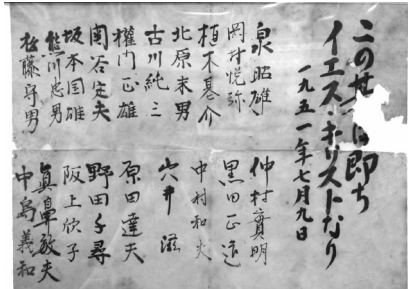 この は即ち
イエス・キリストなり
一九五一年七月九日
泉昭雄
岡村悦弥
植木基介
北原末男
古川純三
權門正雄
関谷定夫
坂本国雄
熊川忠男
松藤守男
仲村實明
黒田正
中村和夫
穴井 滋
原田達夫
野田千尋
阪上欣子
眞
中島義和